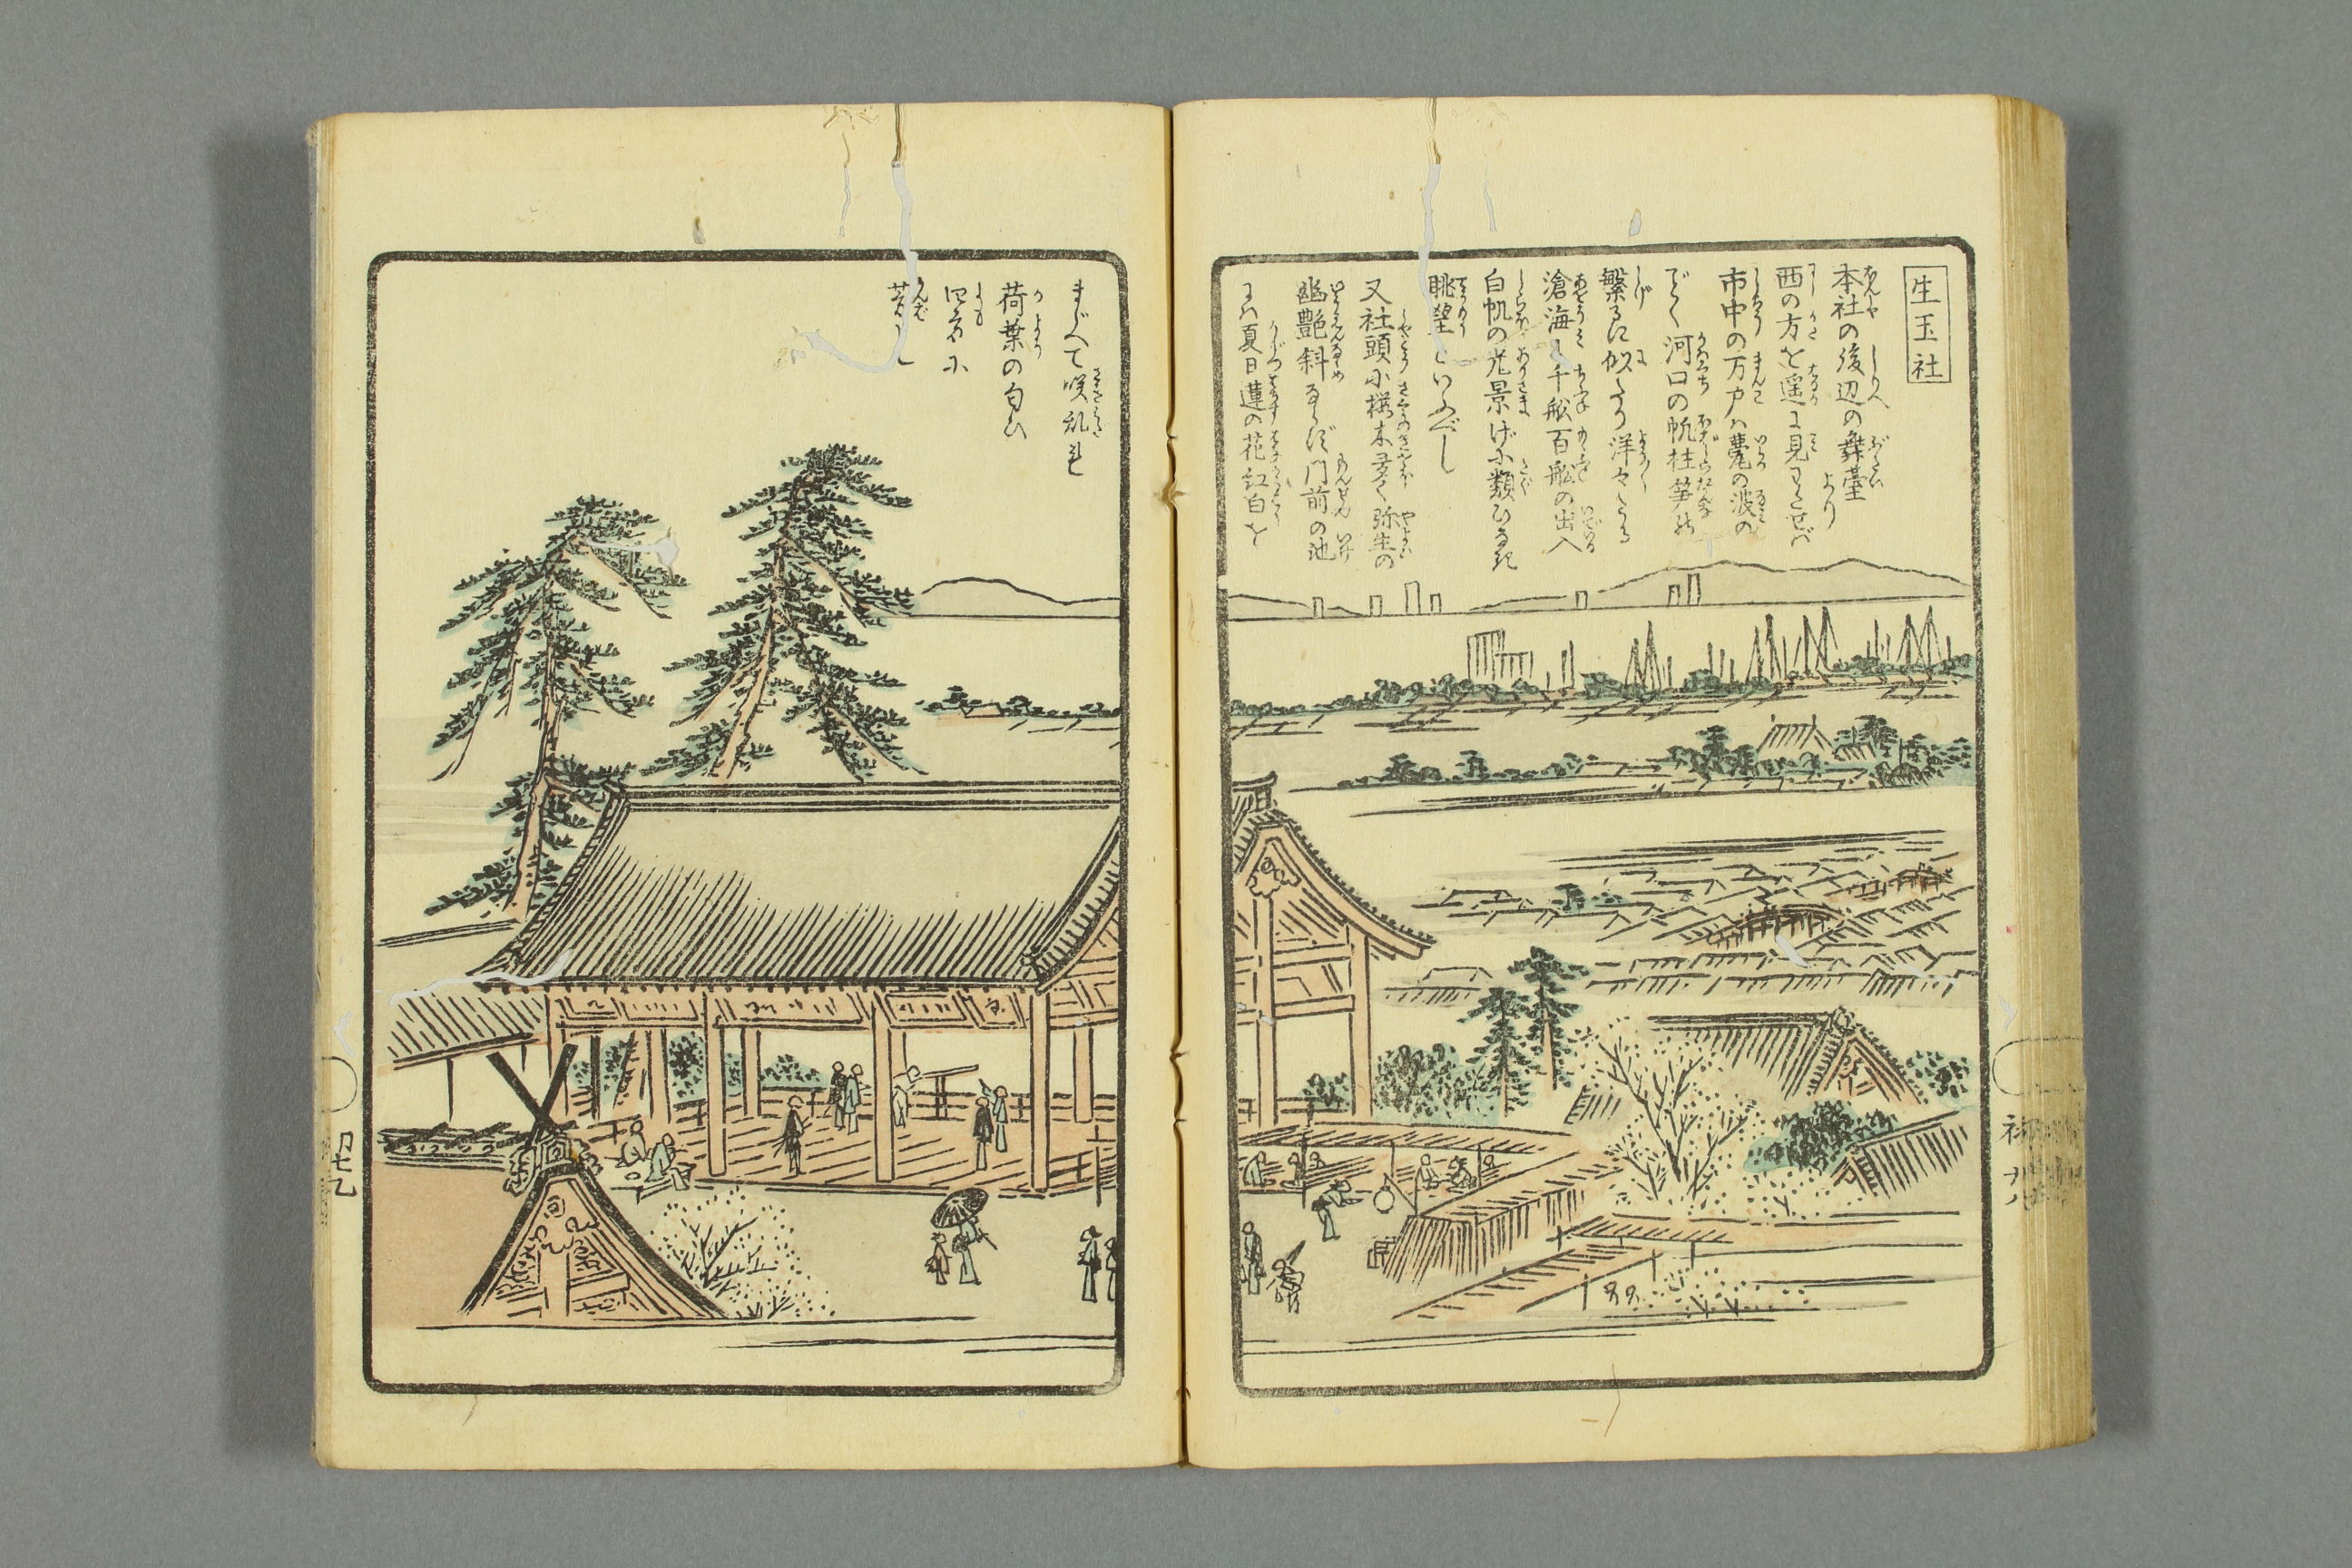 生玉社
本社の後辺の舞臺より
西の方を遥に見わたせば
市中の万戸は甍の波の
ごとく河口の帆柱笋の
繁るに似たり洋々たる
滄海に千舩百舩の出入
白帆の光景げに類ひなき
眺望といふべし
又社頭に桜木多く弥生の
幽艶斜ならず門前の池
には夏日蓮の花紅白を
まじへて咲乱れ
荷葉の匂ひ
四方に
芳し